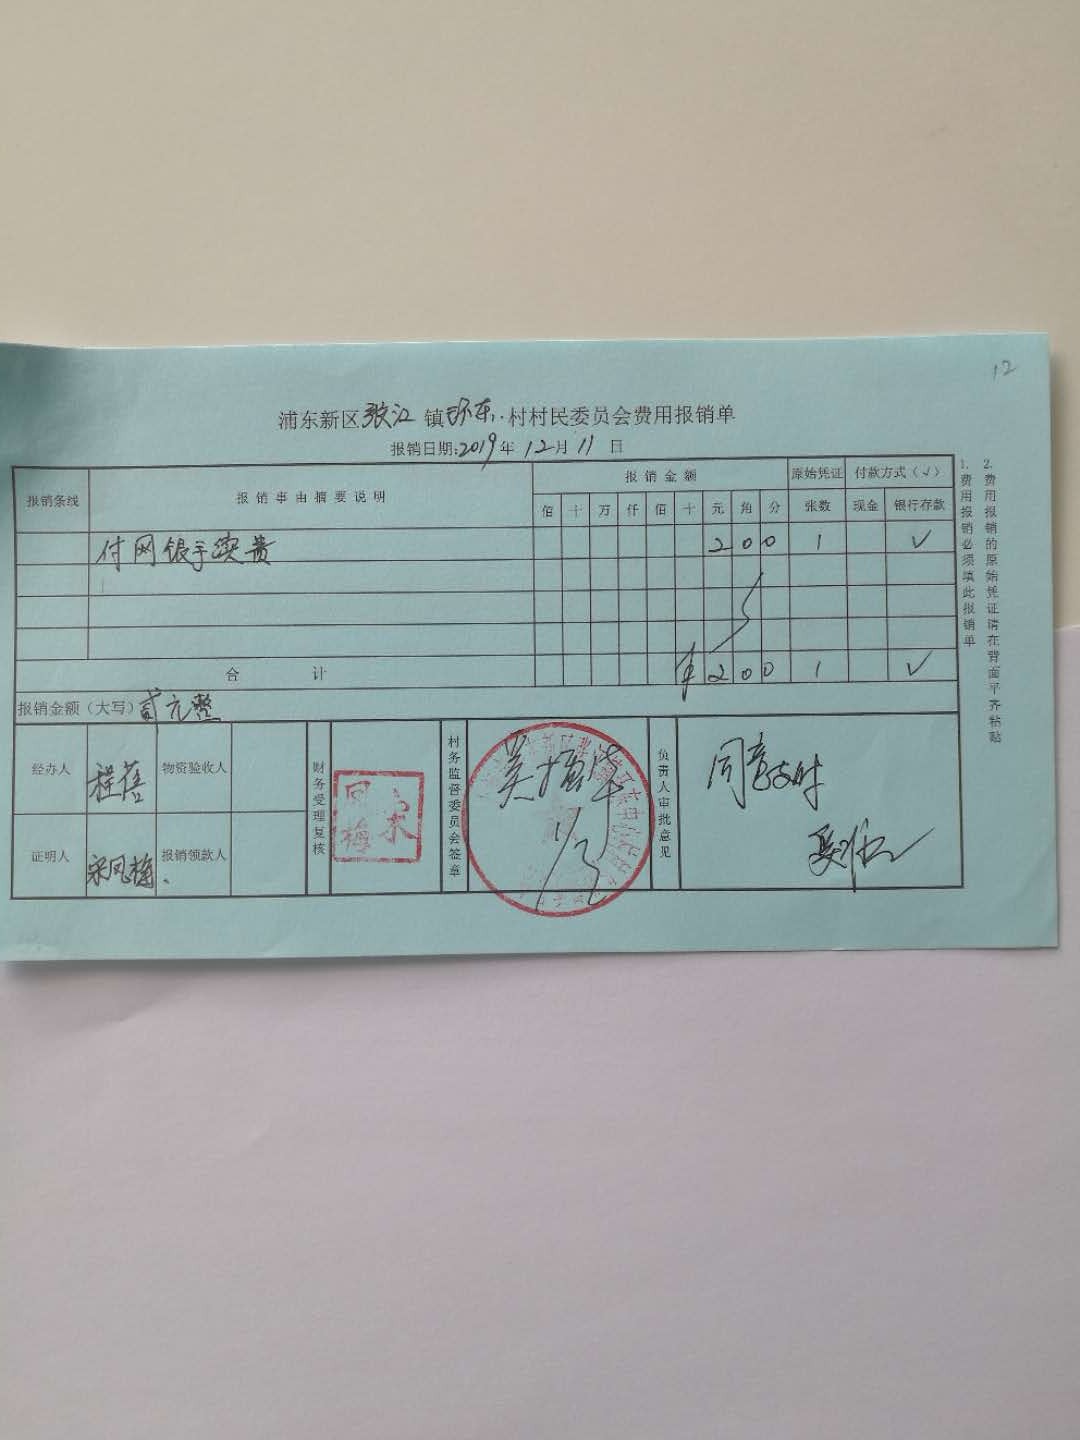 12
浦东新区张江镇环东村村民委员会费用报销单
报销日期:2019年12月11日
报销条线 报销事由摘要说明 报销金额 原始凭证 付款方式(√)
佰 十 万 仟 佰 十 元 角 分 张数 现金 银行存款
付网银手续费 2 0 0 1 √
合计 ¥ 2 0 0 1 √
报销金额(大写) 贰元整
经办人 程蓓 物资验收人
证明人 宋凤梅、 报销领款人
财务受理复核
宋凤梅
村务监督委员会签章
负责人审批意见
同意支付
1.费用报销必须填此报销单
2.费用报销的原始凭证请在背面平齐粘黏